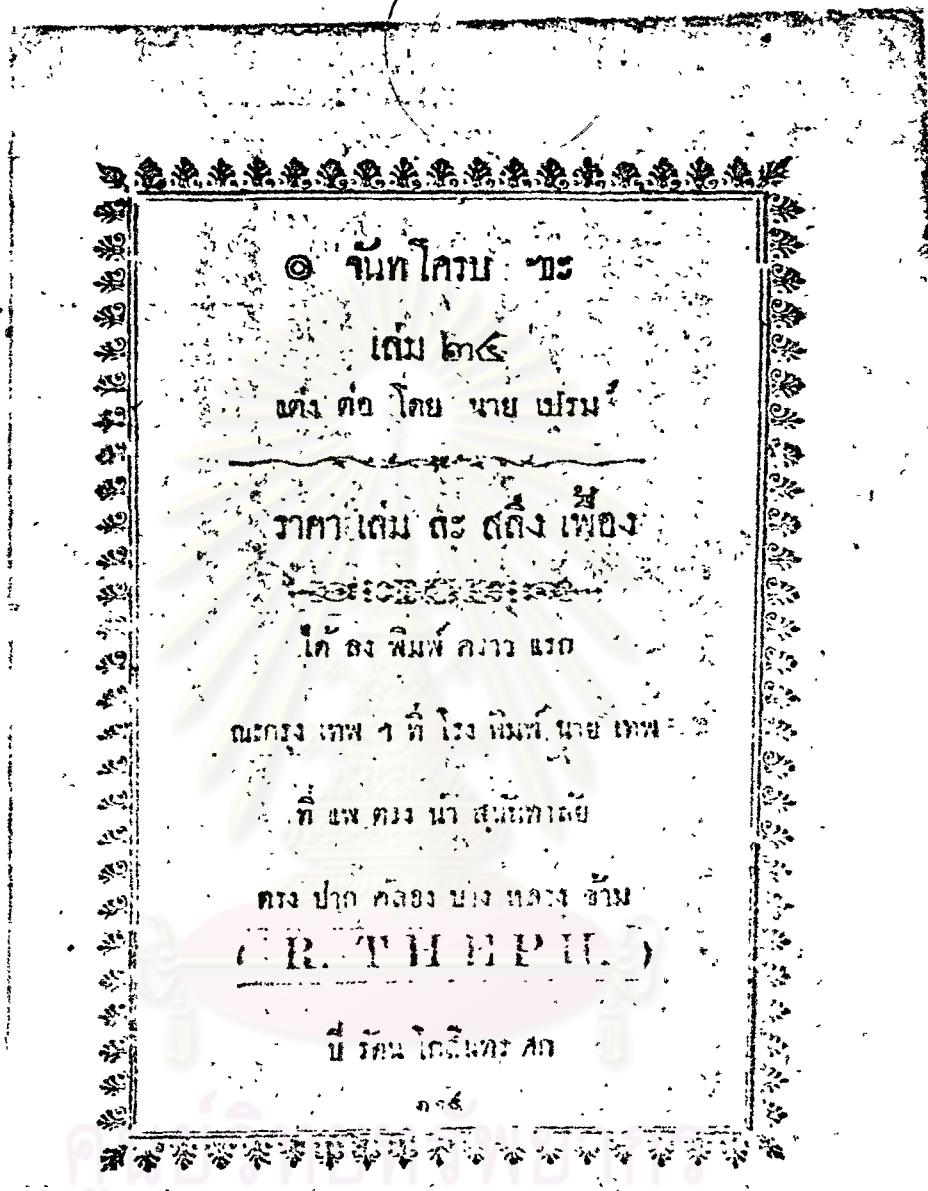 ๏ จันทโครบ ฃะ
เล่ม ๒๕
แต่ง ต่อ โดย นาย เปรม
ราคา เล่ม ละ สลึง เฟื้อง
ได้ ลง พิมพ์ คราว แรก
ณะกรุง เทพ ฯ ที่ โรง พิมพ์ นาย เทพ
ที่ แพ ตรง น่า สุนันทาลัย
ตรง ปาก คลอง บาง หลวง ข้าม
( R. THEPH. )
ปี รัตน โกสินทร ศก
ศูนย์วิทยทรัพยากร